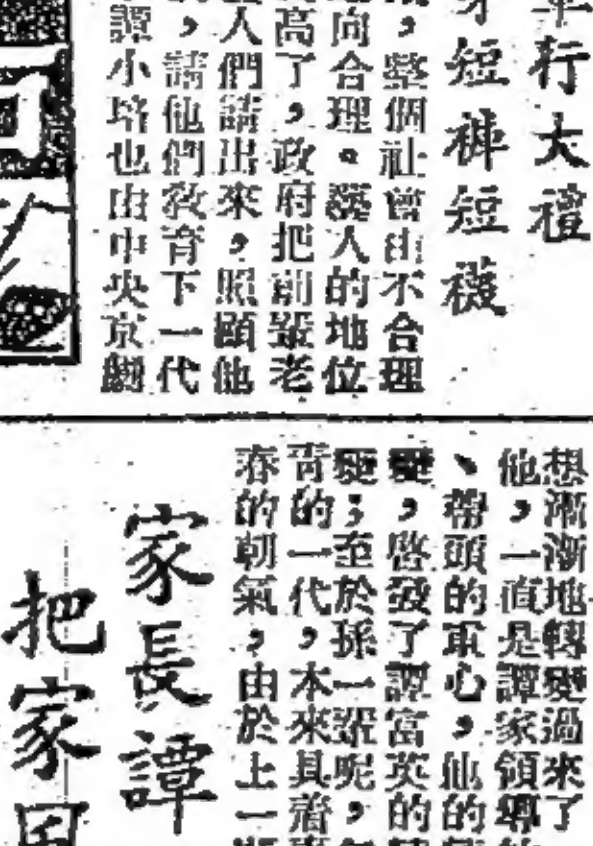 行大禮
短褲短襪
，整個社會由不合理
向合理。藝人的地位
高了，政府把前輩老
人們請出來，照顧他
，請他們教育下一代
譚小培也由中央京劇
想漸漸地轉變過來了
他，一直是譚家領導
、帶頭的軍心，他的
變，啓發了譚富英的
變；至於孫一輩呢，
青的一代，本來具着
春的朝氣，由於上一
家長譚
把家